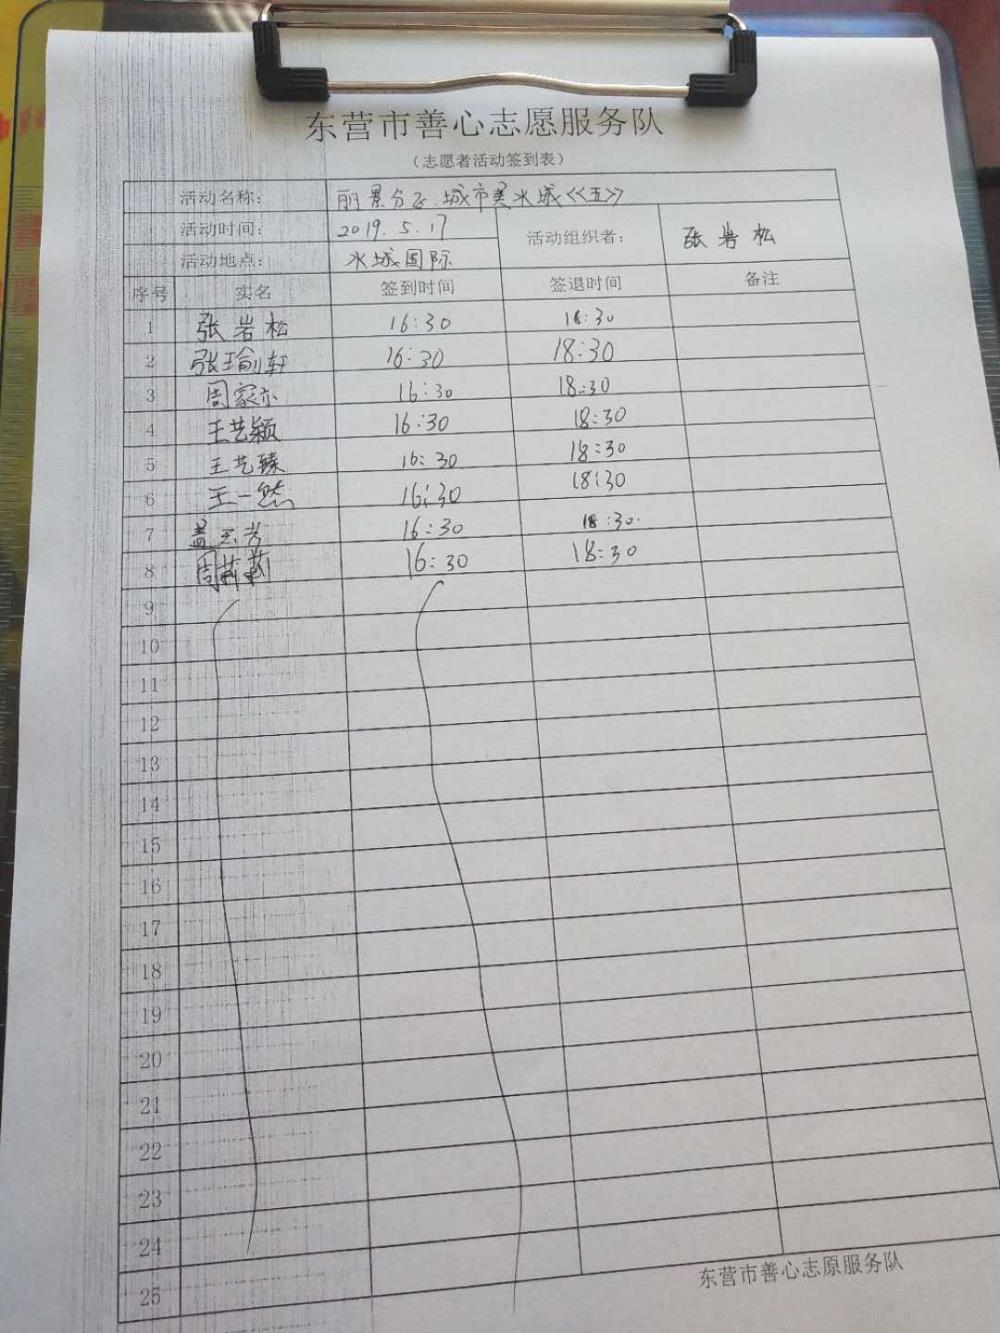 东营市善心志愿服务队
（志愿者活动签到表）
活动名称： 丽景分正.城市美水城《五》
活动时间： 2019.5.17 活动组织者： 张岩松
活动地点： 水城国际
序号 实名 签到时间 签退时间 备注
1 张岩松 16:30 18:30
2 张瑜轩 16:30 18:30
3 周家亦 16:30 18:30
4 王艺颖 16:30 18:30
5 王艺臻 16:30 18:30
6 王一然 16:30 18:30
7 盖芳 16:30 18:30
8 周莉莉 16:30 18:30
9
10
11
12
13
14
15
16
17
18
19
20
21
22
23
24
25
东营市善心志原服务队